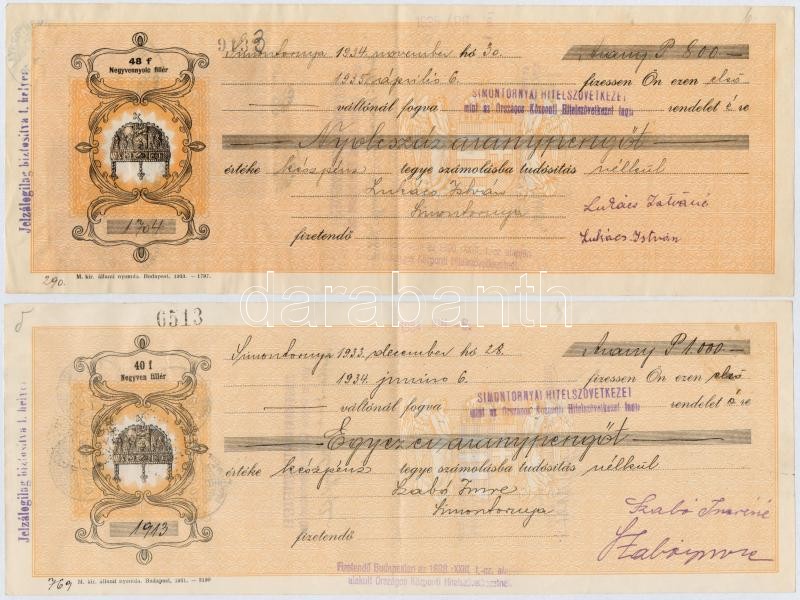 48 f
Negyvennyolc fillér
9133
Simontornya 1934. november hó 30.
Arany P 800.—
1935. április 6.
fizessen Ön ezen első
SIMONTORNYAI HITELSZÖVETKEZET
mint az Országos Központi Hitelszövetkezet tagja
váltónál fogva
rendeletére
Nyolcszáz aranypengőt
értéke készpénz tegye számolásba tudósítás nélkül
Lukács István
Simontornya
Lukács Istvánné
Lukács István
fizetendő
1704
Jelzálogilag biztosítva l. helyen
290.
M. kir. állami nyomda. Budapest, 1933. — 1797.
darabanth
6513
40 f
Negyven fillér
Simontornya 1933. december hó 28.
Arany P 1.000.—
1934. június 6.
fizessen Ön ezen első
SIMONTORNYAI HITELSZÖVETKEZET
mint az Országos Központi Hitelszövetkezet tagja
váltónál fogva
rendeletére
Egyezer aranypengőt
értéke készpénz tegye számolásba tudósítás nélkül
Szabó Imre
Simontornya
Szabó Imréné
Szabó Imre
fizetendő
1913
Jelzálogilag biztosítva l. helyen
Fizetendő Budapesten az 1898. XXIII. t.-cz. alapján
alakult Országos Központi Hitelszövetkezetnél.
769
M. kir. állami nyomda. Budapest, 1931. — 2190